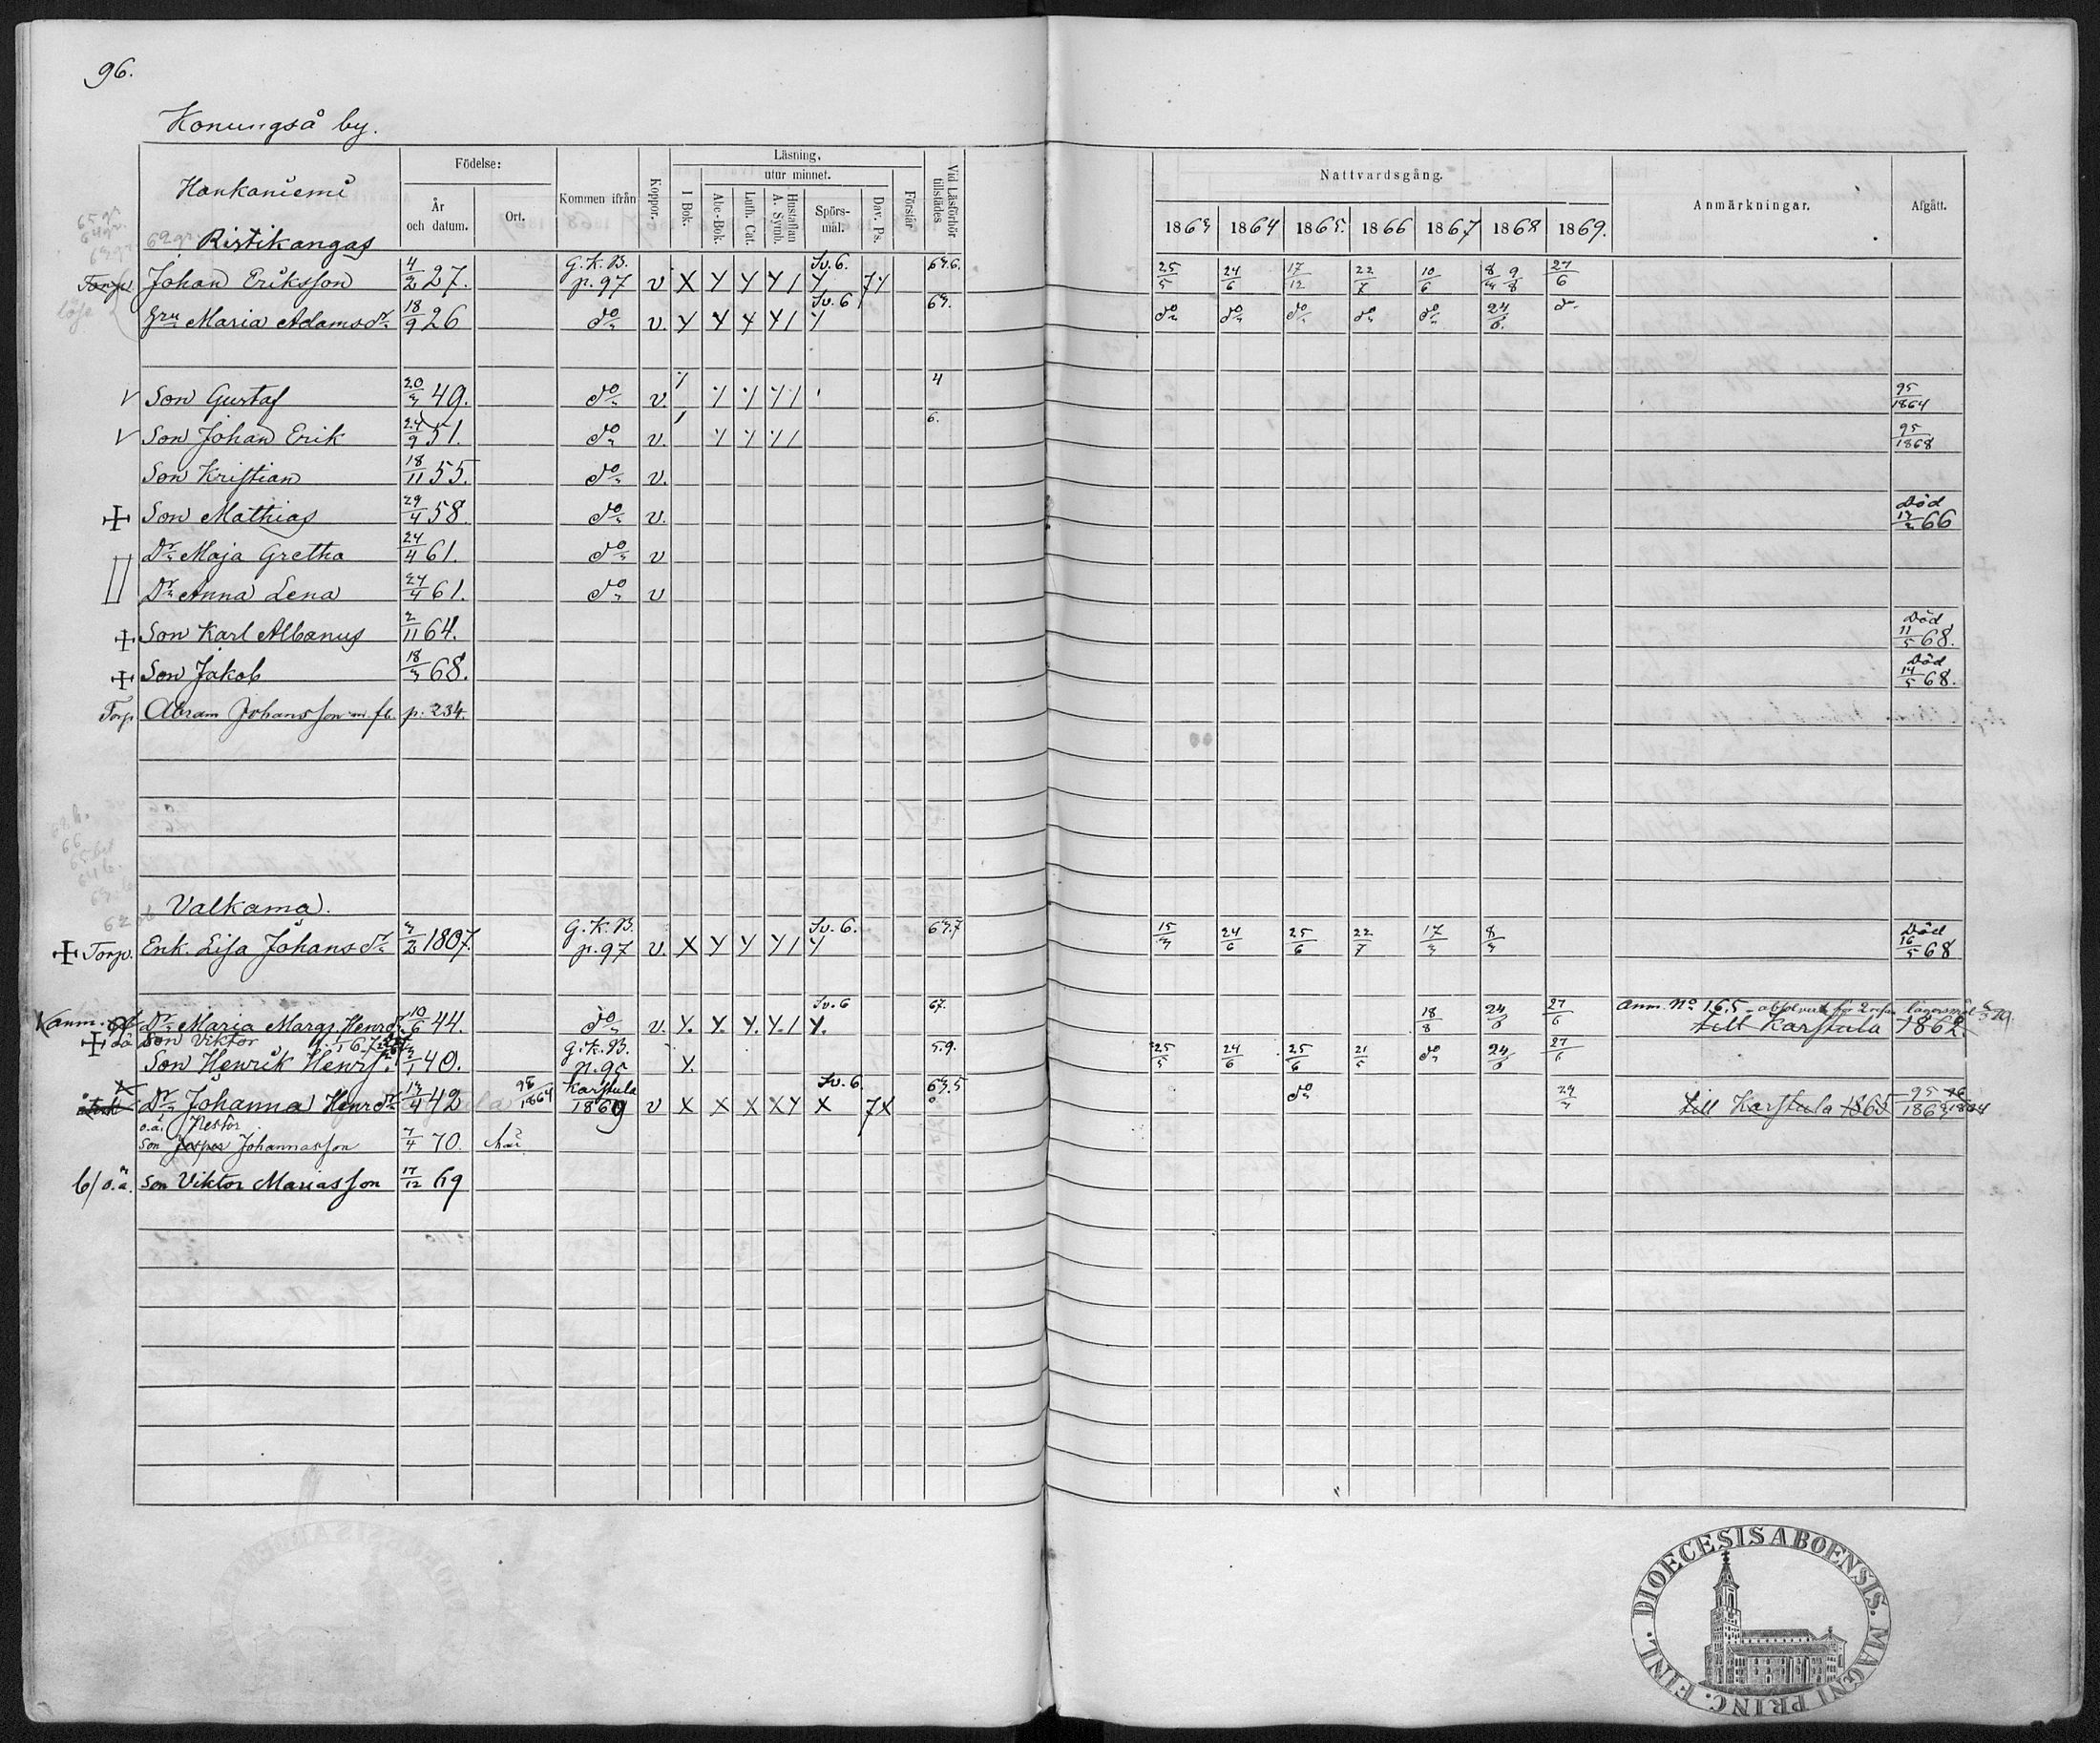 96.
Konungså by.
Hankaniemi
Födelse:
År och datum.
Ort.
Kommen ifrån
Koppor.
Läsning,
I Bok.
utur minnet.
Abc-Bok.
Luth. Cat.
Hustaflan A. Symb.
Spörsmål.
Dav. Ps.
Förstår
Vid Läsförhör tillstädes
Nattvardsgång.
1863 1864 1865. 1866 1867 1868 1869.
Anmärkningar.
Afgått.
Ristikangas
Torp. Johan Eriksson 4/2 27. G.K.B. p. 97 v X Y Y Y / Sv. 6. Y 7 Y 63.6. 25/5 24/6 17/12 22/7 10/6 8/3 9/8 27/6
löse Hru Maria Adamsdr 18/9 26 do v. Y Y Y Y / Sv. 6 Y 63. do do do do do 24/6. do
V Son Gustaf 20/3 49. do v. 4 95/1864
V Son Johan Erik 24/9 51. do v. 6. 95/1868
Son Kristian 18/11 55. do v.
+ Son Mathias 29/4 58. do v. Död 13/3 66
Dr Maja Gretha 24/4 61. do v
Dr Anna Lena 24/4 61. do v
+ Son Karl Albanus 2/11 64. Död 11/5 68.
+ Son Jakob 18/3 68. Död 14/5 68.
Torp. Abram Johansson m. fl. p. 234.
Valkama.
+ Torp. Enk. Lisa Johansdr 3/2 1807. G.K.B. p. 97 v. X Y Y Y / Sv. 6. Y 63.7 15/3 24/6 25/6 22/7 17/3 8/3 Död 16/5 68
anm. Dr Maria Margr. Henrdr 10/6 44. do v. Y. Y. Y. Y. / Sv. 6 Y. 67. 18/8 24/6 27/6 Anm. No 165 till Karstula 1862.
+ Son Viktor
Son Henrik Henrs. 3/1 40. G.K.B. p. 95 Y. 5.9. 25/5 24/6 25/6 21/5 do 24/6 27/6
Dr Johanna Henrdr 13/4 42 98/1864 Karstula 1869 v X X X X Y Sv. 6. X 7 X 63.5 do till Karstula 1865 95/1863
o.ä. Nestor
Son Jesper Johannasson 7/4 70. här
b/ o.ä. Son Viktor Mariasson 17/12 69
DIOECESIS ABOENSIS. MAGNI PRINC. FINL.